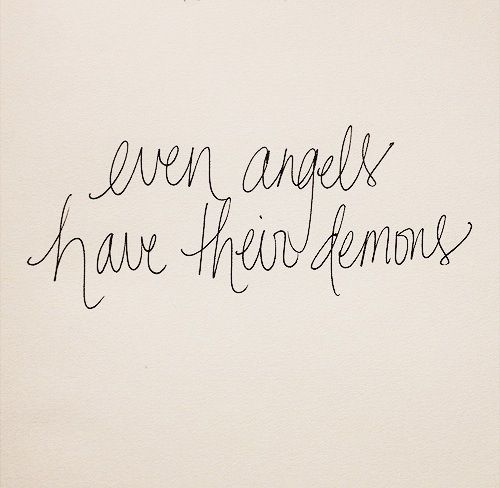 even angels
have their demons